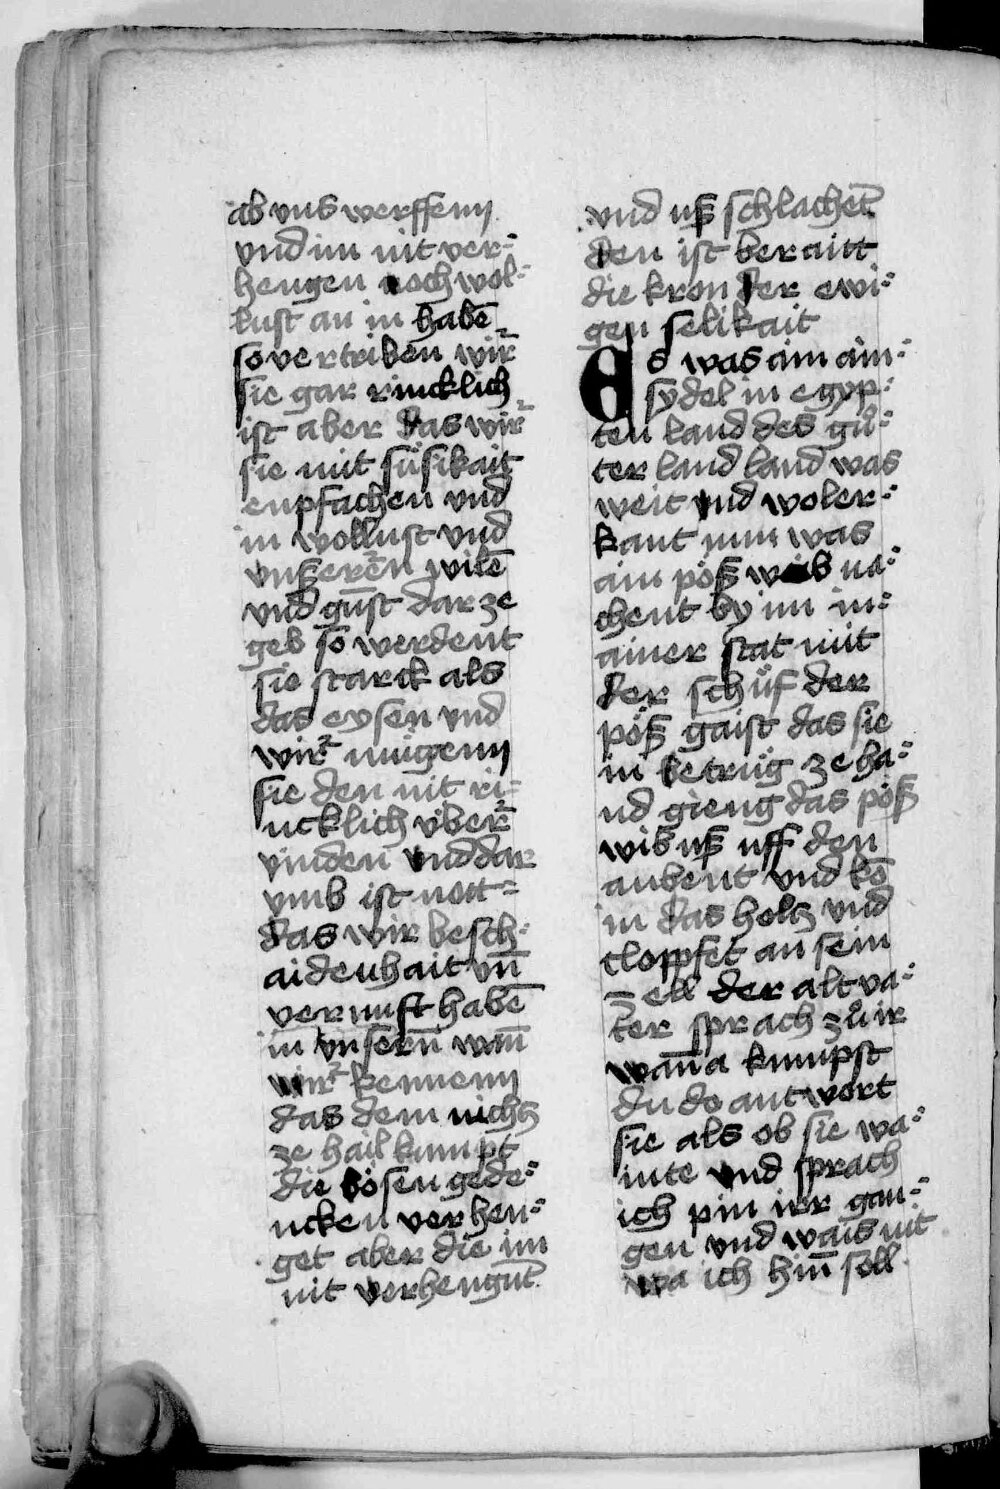 ab vns werffenn
vnd im nit ver⸗
hengen noch wol⸗
lust an in habē
so vertriben wir
sie gar rincklich
ist aber das wir
sie mit süsikait
enpfachen vnd
in wollust vnd
vnßerēn wilē
vnd gunst dar ze
geb so werdent
sie starck als
das eysen vnd
wir mügenn
sie den nit ri⸗
ncklich v̈ber
vinden vnd dar
vmb ist nott⸗
das wir besch⸗
aidenhait vn̄
vernuft habē
in vnsern̄ wan̄
wir kennenn
das dem nichtz
ze hail kumpt
die bösen gede⸗
ncken verhen⸗
get aber die im
nit verhengnt
vnd uß schlachet̄
den ist beraitt
die kron der ewi⸗
gen selikait
Es was ain ain⸗
sydel in egyp⸗
ten land des gů⸗
ter land land was
weit vnd wol er⸗
kant nun was
ain pöß weib na⸗
chent by im in⸗
ainer stat mit
der schüf der
pöß gaist das sie
in betrüg ze ha⸗
nd gieng das pöß
wib uß uff den
aubent vnd kō
in das holtz vnd
clopfet an sein
zell der alt va⸗
ter sprach zů ir
wan̄a kumpst
du do antwort
sie als ob sie wa⸗
inte vnd sprach
ich pin irr gan⸗
gen vnd wais nit
wa ich hin̄ soll